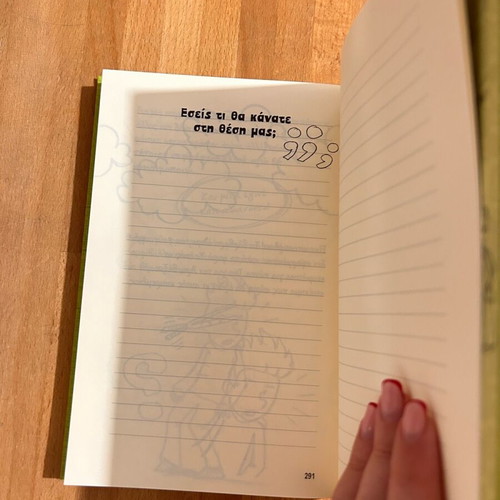 Εσείς τι θα κάνατε
στη θέση μας;
;;;
291